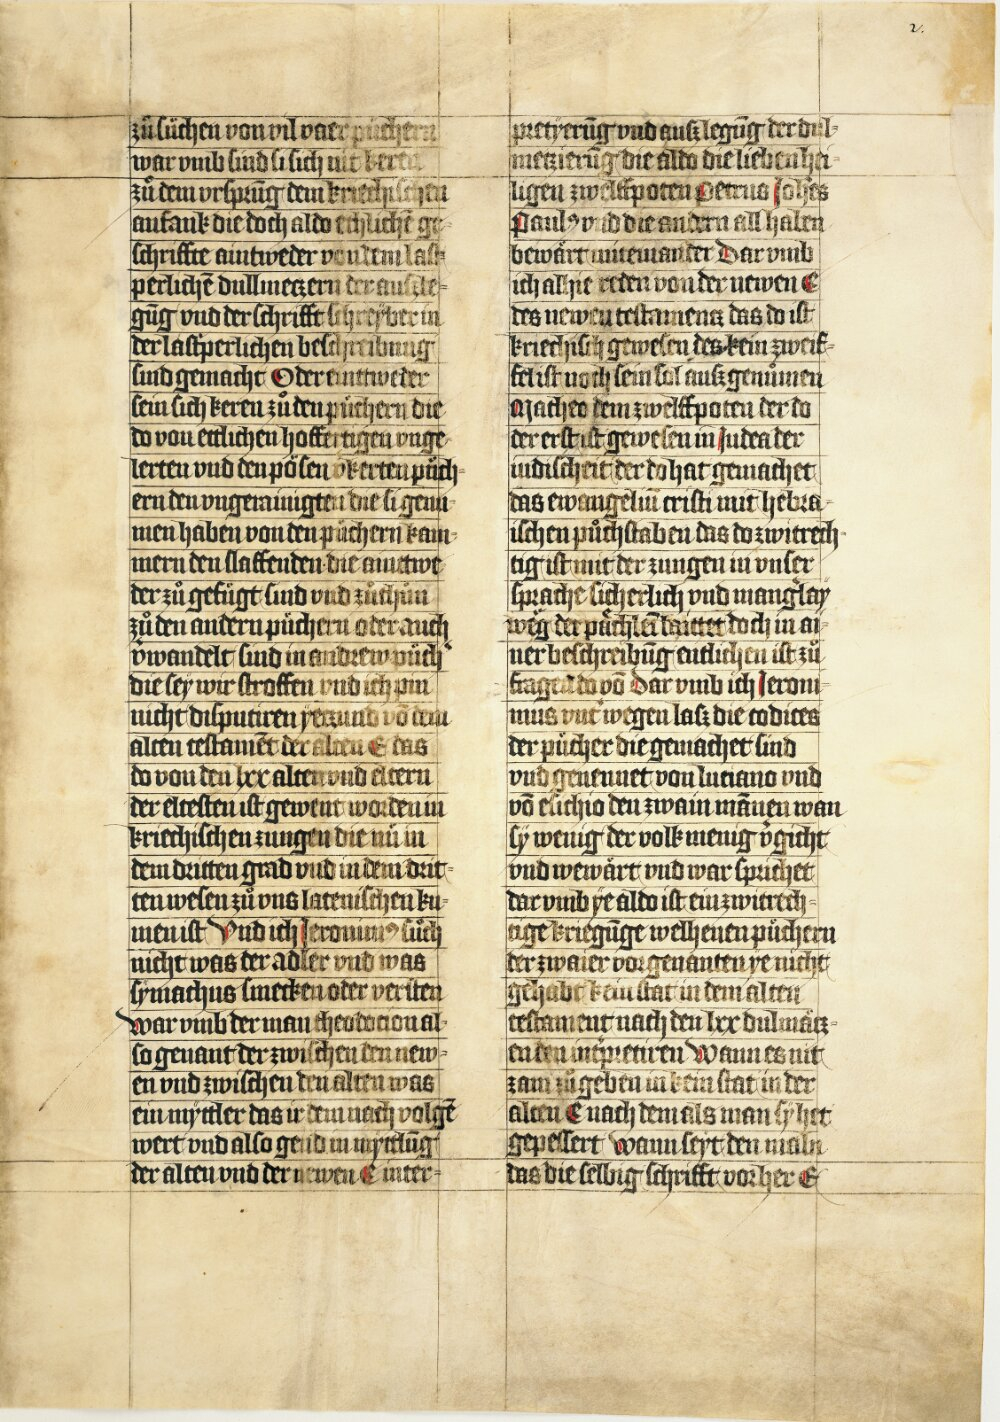 2.
zů sůchen von vil vaer püchern
war vmb sind si sich nit keren
zů dem vrsprūg dem kriechischen
anfank die doch aldo etlichē ge-
schriffte aintweder von dem last-
perlichē dullmeczern der auszle-
gūg vnd der schrifft schreyber in
der lastperlichen beschreibung
sind gemacht Oder eintweder
sein sich keren zů den püchern die
do von ettlichen hoffertigen vnge-
lerten vnd den pösen v̄kerten püch-
ern den vngerainigten die si genü-
men haben von den püchern kam-
mern den slaffenden die aintwe
der zů gefügt sind vnd
zů den andern püchern oder auch
v̄wandelt sind in andrew püch
die sey wir stroffen vnd ich pin
nicht disputiren yeczund vō dem
alten testamēt der alten E das
do von den lxx alten vnd eltern
der eltesten ist gewent worden in
kriechischen zungen die nü in
dem dritten grad vnd in dem drit-
ten wesen zů vns latenischen ku-
men ist Vnd ich Jeronimꝰ süch
nicht was der adler vnd was
symachus smecken oder
war vmb der man theodocion al-
so genant der zwischen den new-
en vnd zwischen den alten was
ein myttler das ir dem nach volgē
wert vnd also gend in myttlūg
der alten vnd der newen E inter-
pretyerūg vnd auszlegūg der dul-
meczierūg die aldo die lieben hei-
ligen zwelfspoten Petrus Joh̄es
Paulꝰ vnd die andern all haben
bewärt miteinander Dar vmb
ich alhie reden von der newen E
des newen testamencz das do ist
kriechisch gewesen des kein zweif-
fel ist noch sein sol ausz genümen
Matheo dem zwelffpoten der do
der erst ist gewesen in Judea der
iudischeit der do hat gemachet
das ewangeliū cristi mit hebra-
ischen püchstaben das do zwitrech-
tig ist mit der zungen in vnser
sprache sicherlich vnd manglay
weg der püchlein doch in ai-
ner beschreibūg entlichen ist zü
fragen do vō Dar vmb ich Jeroni-
mus vnt̄wegen lasz die codices
der pücher die gemachet sind
vnd genennet von luciano vnd
vō esichio den zwain mānen wan
sy wenig der volk menig v̄gicht
vnd wewärt vnd war sprichet
dar vmb ye aldo ist ein zwitrech-
tige kriegūge welhenen püchern
der zwaier vorgenanten ye nicht
gehabt kein stat in dem alten
testament nach den lxx dulmäcz-
en den int̄pretiren Wann es nit
zam zů geben in kein stat in der
alten E nach dem als man sy het
gepessert Wann seyt den maln
das die selbig schrifft vorher E